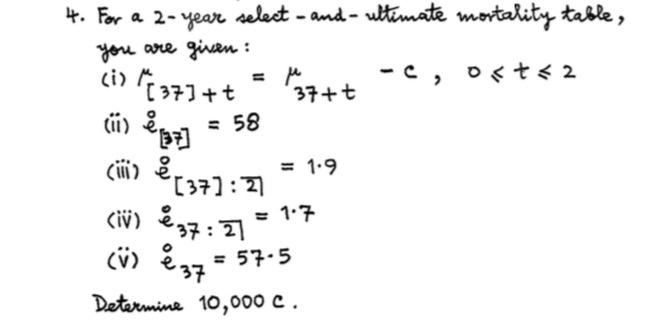 4. For a 2-year select-and-ultimate mortality table,
you are given:
(i) μ[37]+t = μ37+t - c, 0 ≤ t ≤ 2
(ii) e̊[37] = 58
(iii) e̊[37]:2̅| = 1.9
(iv) e̊37:2̅| = 1.7
(v) e̊37 = 57.5
Determine 10,000 c.